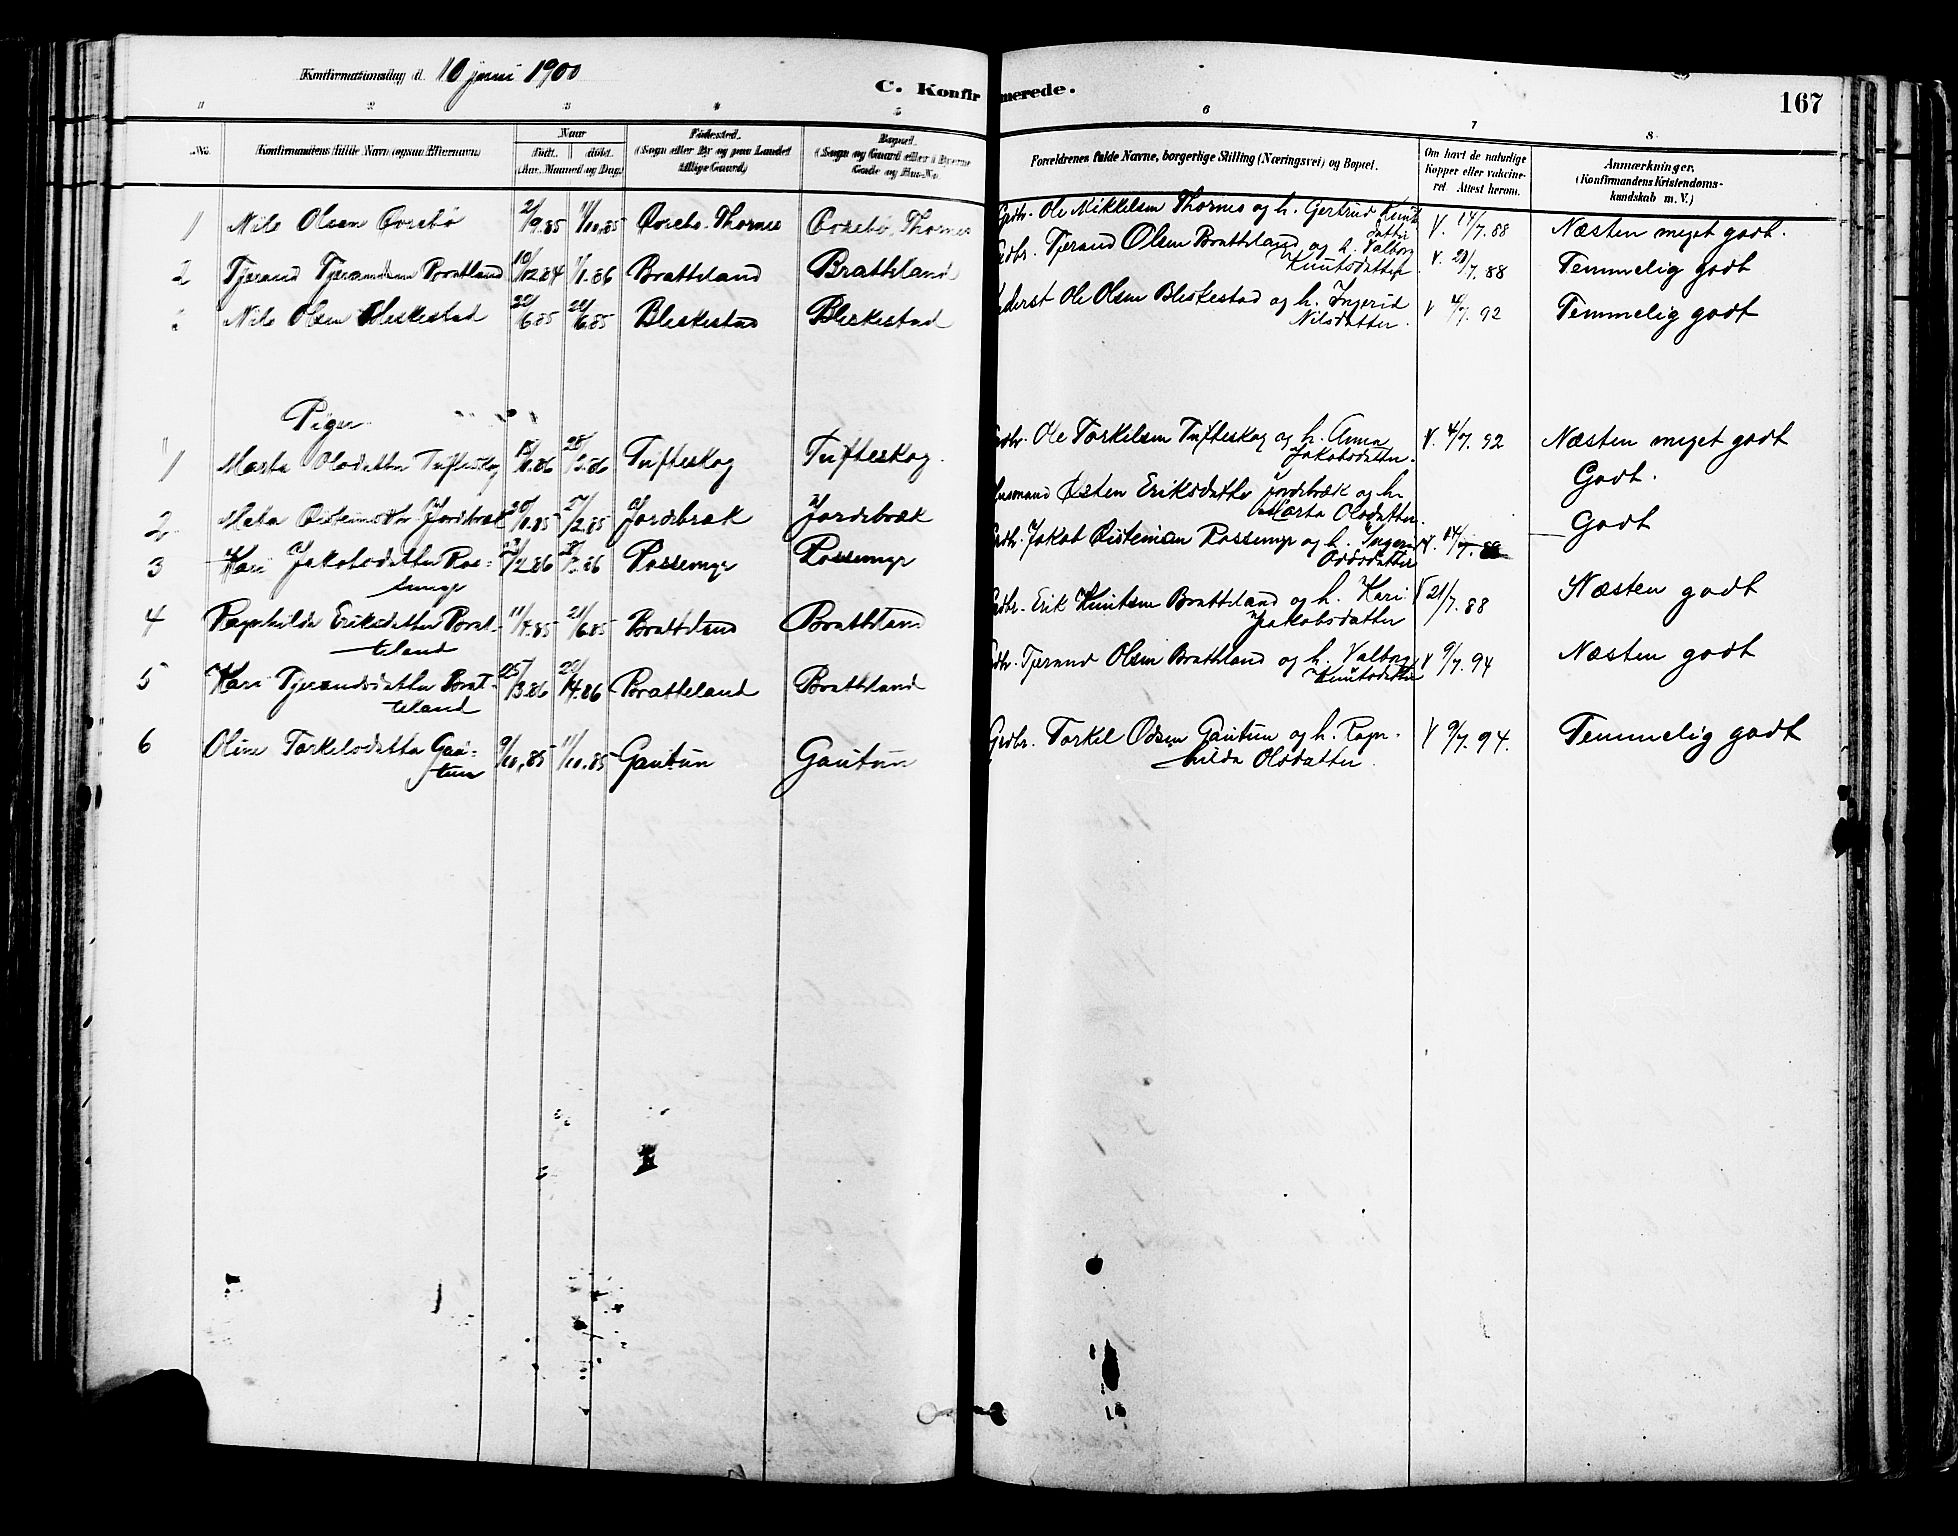 Konfirmationsdag d. 10 juni 1900
C. Konfirmerede.
167
1 2 3 4 5 6 7 8
No. Konfirmandens fulde Navn (ogsaa Efternavn) Naar Født. døbt. (Aar, Maaned og Dag) Fødested. (Sogn eller By og paa Landet tillige Gaard) Bopæl. (Sogn og Gaard eller i Byerne Gade og Hus-No. Forældrenes fulde Navne, borgerlige Stilling (Næringsvei) og Bopæl. Om havt de naturlige Kopper eller vakcineret Attest herom. Anmærkninger, (Konfirmandens Kristendomskundskab m. V.)
1 Nils Olsen Øvrebø 2/9.85 11/10.85 Øvrebø. Thornes Øvrebø, Thornes Gdbr. Ole Mikkelsen Thornes og h. Gertrud Knutsdatter V. 14/7.88 Næsten meget godt.
2 Tjerand Tjerandsen Bratland 10/12.84 1/1.86 Bratteland Bratteland Gdbr. Tjerand Olsen Bratteland og h. Valborg Knutsdatter V. 21/7.88 Temmelig godt
Nils Olsen Bleskestad 22/6.85 28/6.85 Bleskestad Bleskestad Ole Olsen Bleskestad og h. Ingerid Nilsdatter. V 4/7.92 Temmelig godt
Piger
1 Marta Olsdatter Tufteskog Tufteskog Tufteskog. Gdbr. Ole Torkelsen Tufteskog og h. Anna Jakobsdatter. V. 4/7.92 Næsten meget godt
2 Meta Jordebræk Jordebræk Jordebræk Husmand Østen Jordebræk og h. Marta Olsdatter. Godt.
3 Kari Jakobsdatter Rossemyr Rossemyr Rossemyr Gdbr. Jakob Rossemyr og h. Ingeri Oddsdatter Godt
4 Ragnhilda Eriksdatter Bratteland 11/4.85 21/6.85 Bratteland Bratteland Gdbr. Erik Knutsen Bratteland og h. Kari Jakobsdatter V 21/7.88 Næsten godt
5 Kari Tjerandsdatter Bratteland 25/3.86 Bratteland Bratteland Gdbr. Tjerand Olsen Bratteland og h. Valborg Knutsdatter V 9/7.94 Næsten godt
6 Oline Torkelsdatter Gautun 9/10.85 11/10.85 Gautun Gautun Grdbr. Torkel Gautun og h. Ragnhilda Olsdatter. V 9/7.94. Temmelig godt